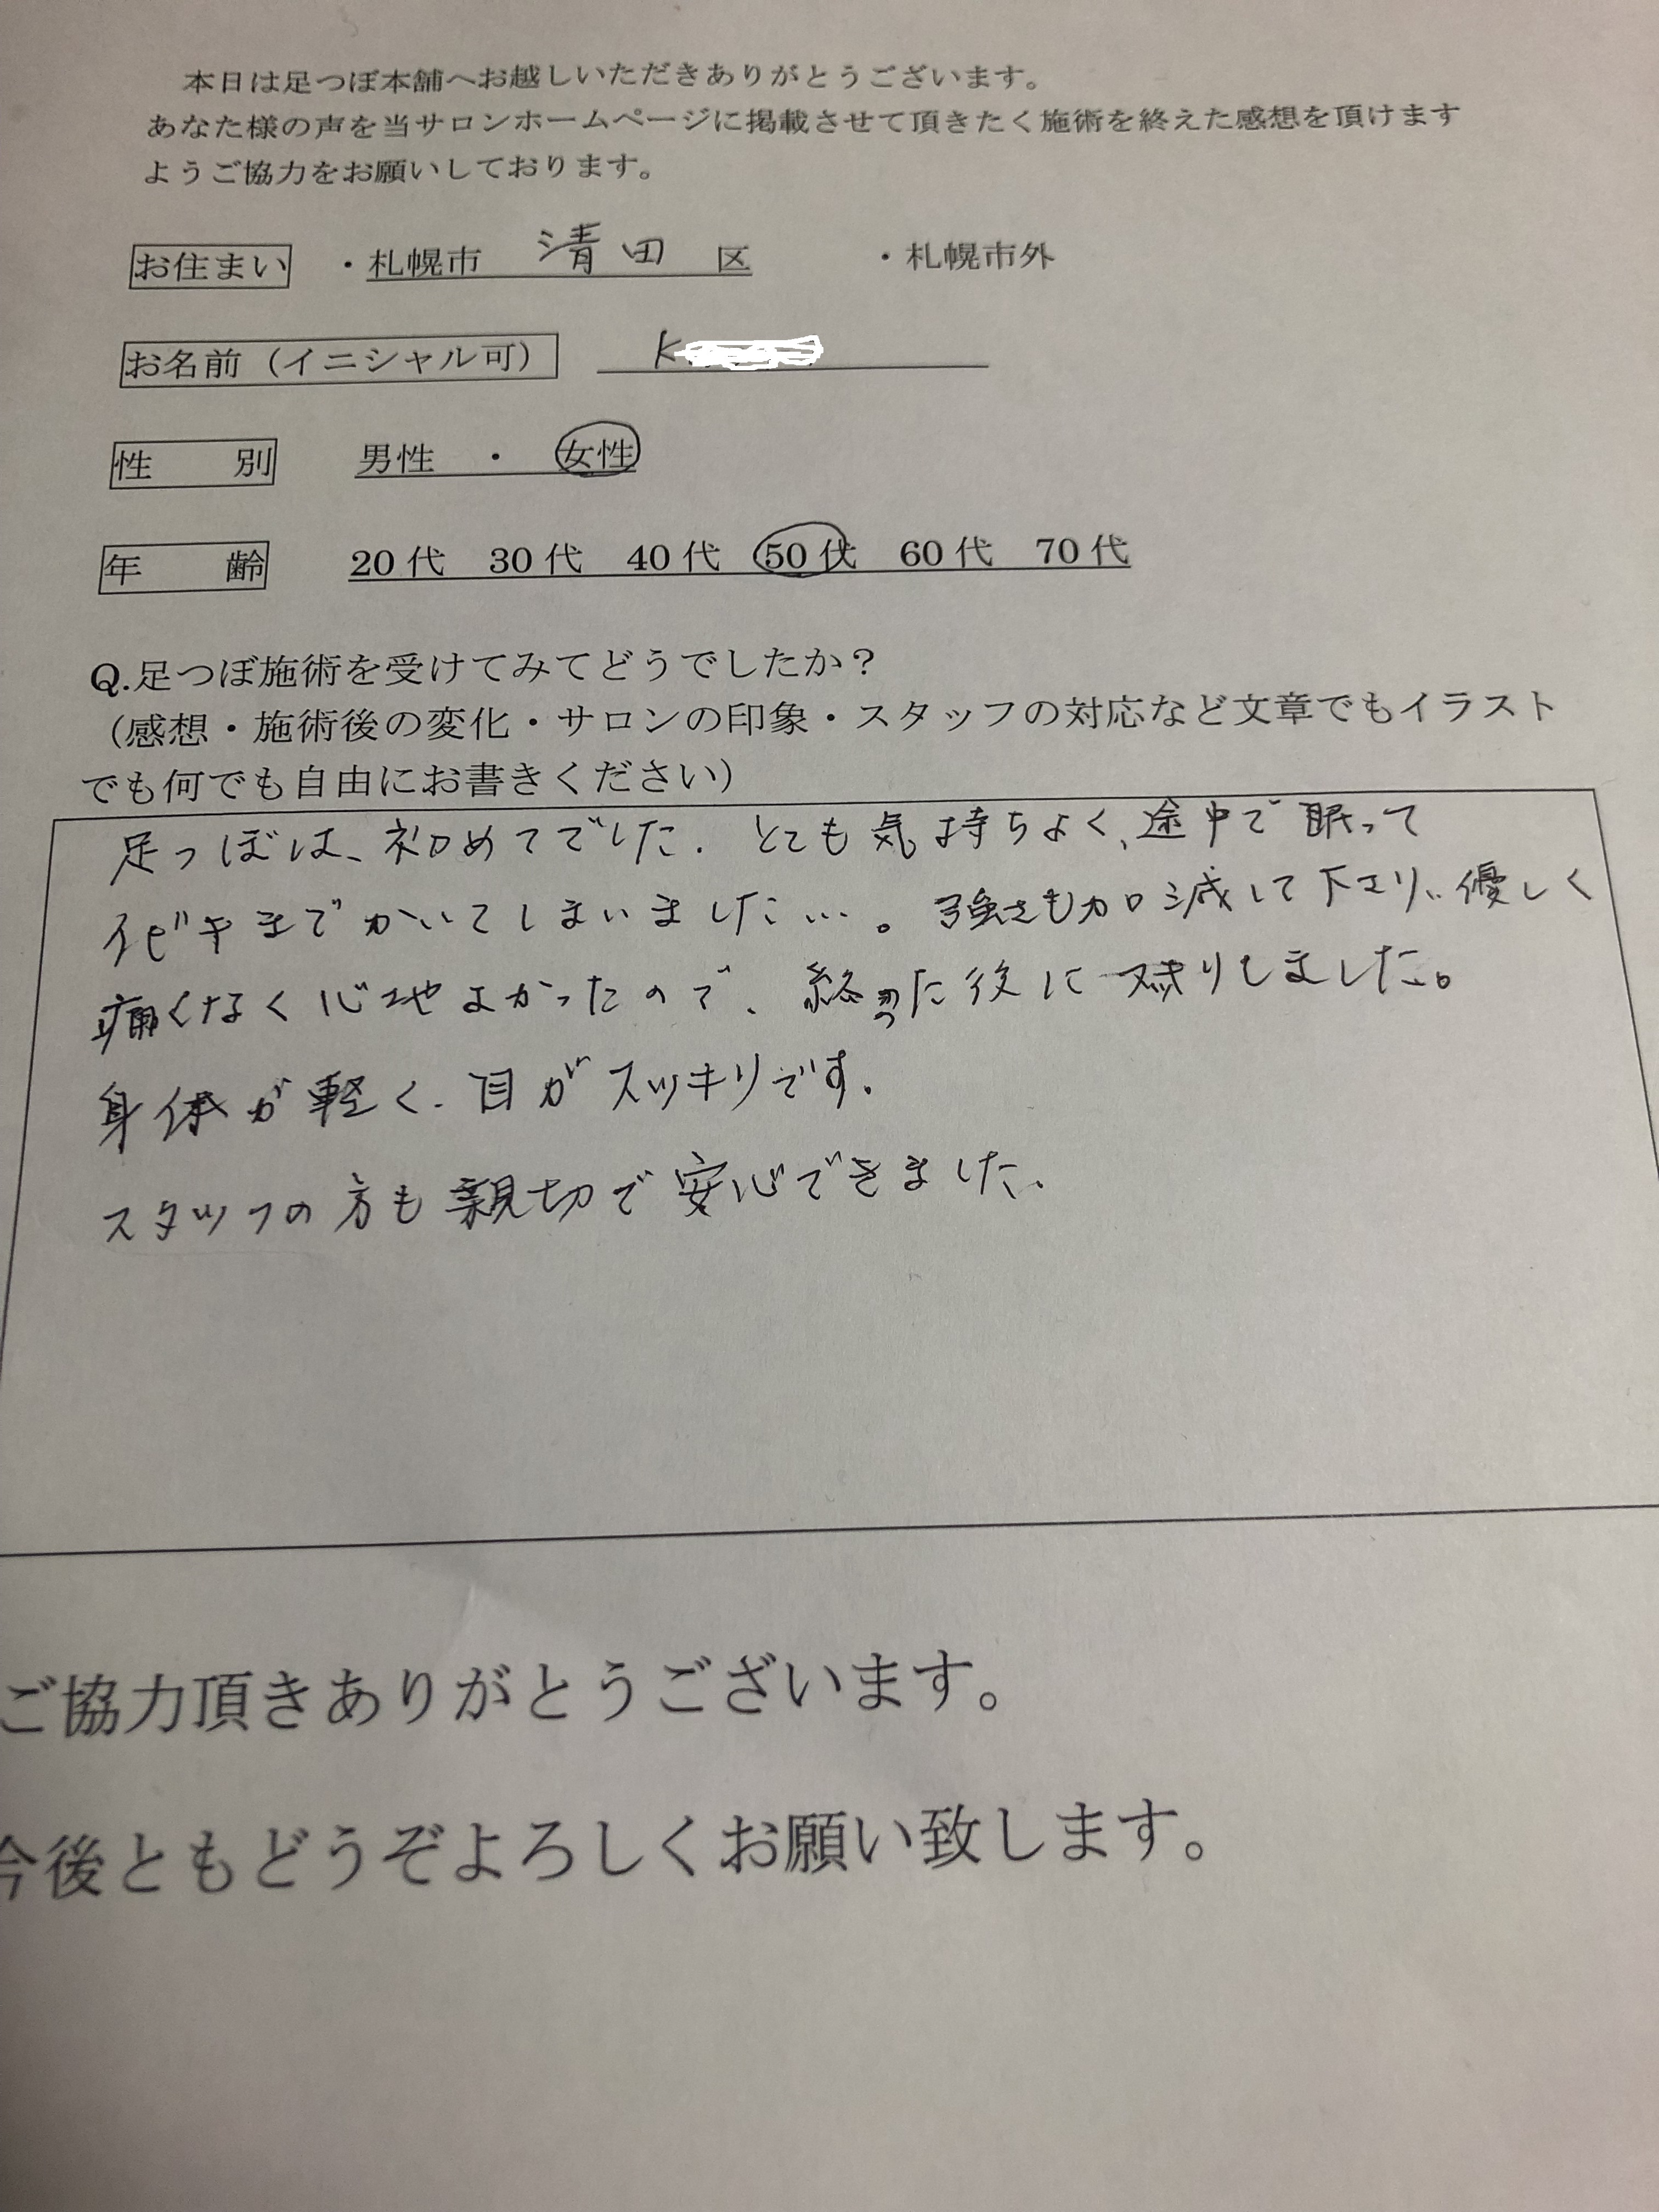 本日は足つぼ本舗へお越しいただきありがとうございます。
あなた様の声を当サロンホームページに掲載させて頂きたく施術を終えた感想を頂けます
ようご協力をお願いしております。
お住まい ・札幌市 清田 区 ・札幌市外
お名前（イニシャル可） K
性 別 男性 ・ 女性
年 齢 20代 30代 40代 50代 60代 70代
Q.足つぼ施術を受けてみてどうでしたか？
（感想・施術後の変化・サロンの印象・スタッフの対応など文章でもイラスト
でも何でも自由にお書きください）
足つぼは、初めてでした. とても気持ちよく、途中で眠って
イビキまでかいてしまいました…。強さも加減して下さり、優しく
痛くなく心地よかったので、終った後に
りしました。
身体が軽く、目がスッキリです.
スタッフの方も親切で安心できました.
ご協力頂きありがとうございます。
今後ともどうぞよろしくお願い致します。